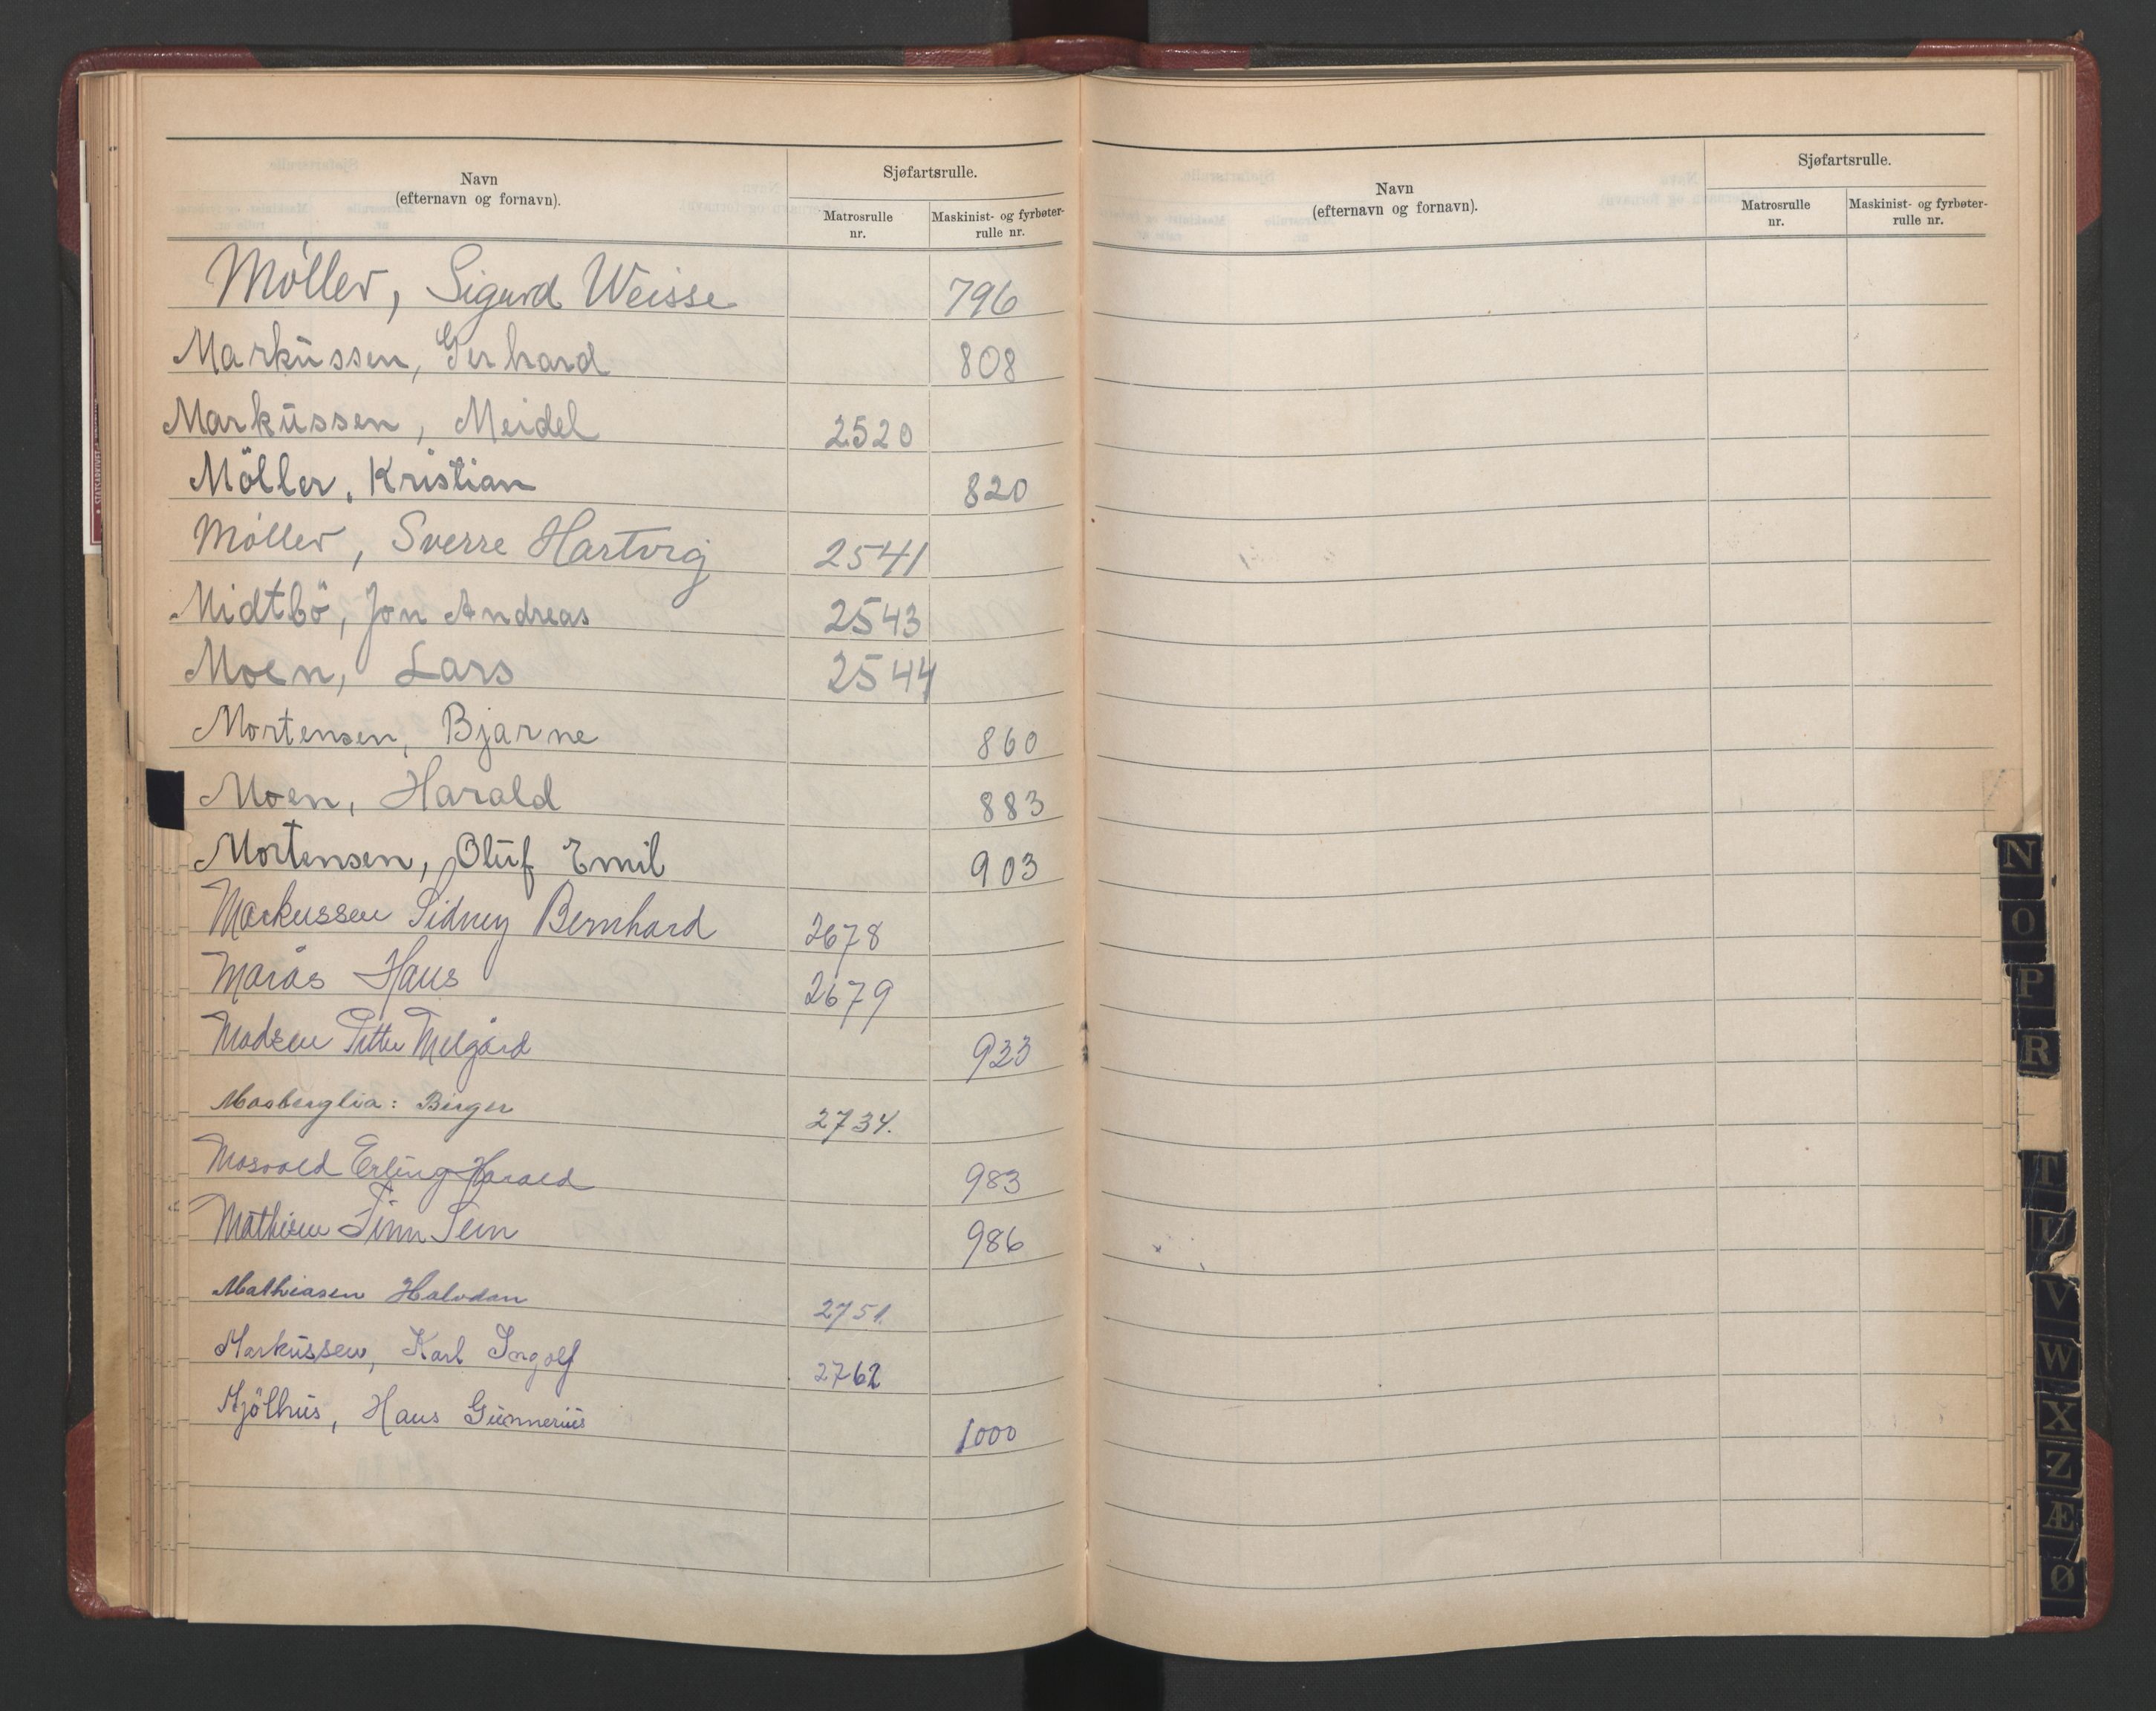 Navn
(efternavn og fornavn).
Sjøfartsrulle.
Matrosrulle nr.
Maskinist- og fyrbøter-rulle nr.
Møller, Sigurd Weisse 796
Markussen, Gerhard 808
Markussen, Meidel 2520
Möller, Kristian 820
Møller, Sverre Hartvig 2541
Midtbö, Jon Andreas 2543
Moen, Lars 2544
Mortensen, Bjarne 860
Moen, Harald 883
Mortensen, Oluf Emil 903
Markussen Sidney Bernhard 2678
Marås Hans 2679
Madsen Petter Melgård 933
Mosberglia: Birger 2734.
Mosvold Erling Harald 983
Mathisen Finn 986
Mathiasen Halvdan 2751.
Markussen, Karl Ingolf 2762
Mjölhus, Hans Gunnerius 1000
Navn
(efternavn og fornavn).
Sjøfartsrulle.
Matrosrulle nr.
Maskinist- og fyrbøter-rulle nr.
N
O
P
R
T
U
V
W
X
Z
Æ
Ø